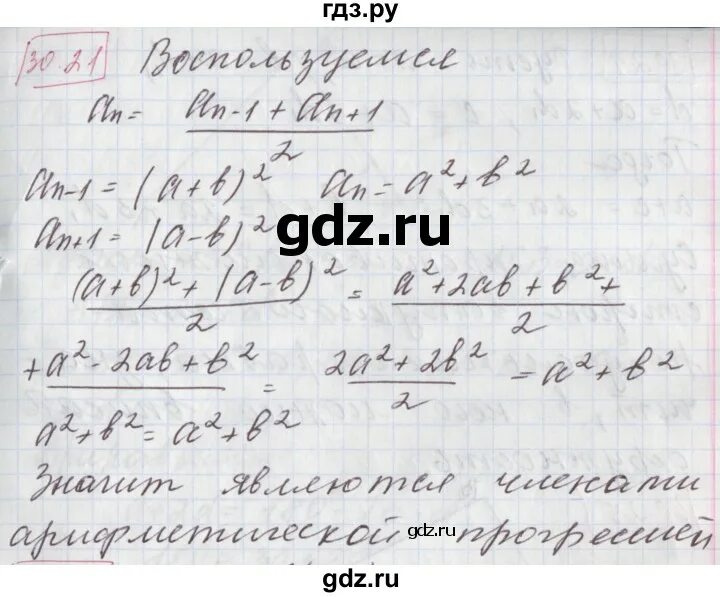 гдз.ру
30.21 Воспользуемся
an = an-1 + an+1 / 2
an-1 = (a+b)² an = a²+b²
gdz.ru
an+1 = (a-b)²
(a+b)² + (a-b)² / 2 = a²+2ab+b²+ / 2
+a²-2ab+b² / = 2a²+2b² / 2 = a²+b²
a²+b² = a²+b²
Значит являются членами
арифметической прогрессией
gdz.ru
gdz.ru